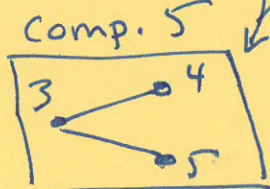 comp. 5
3
4
5